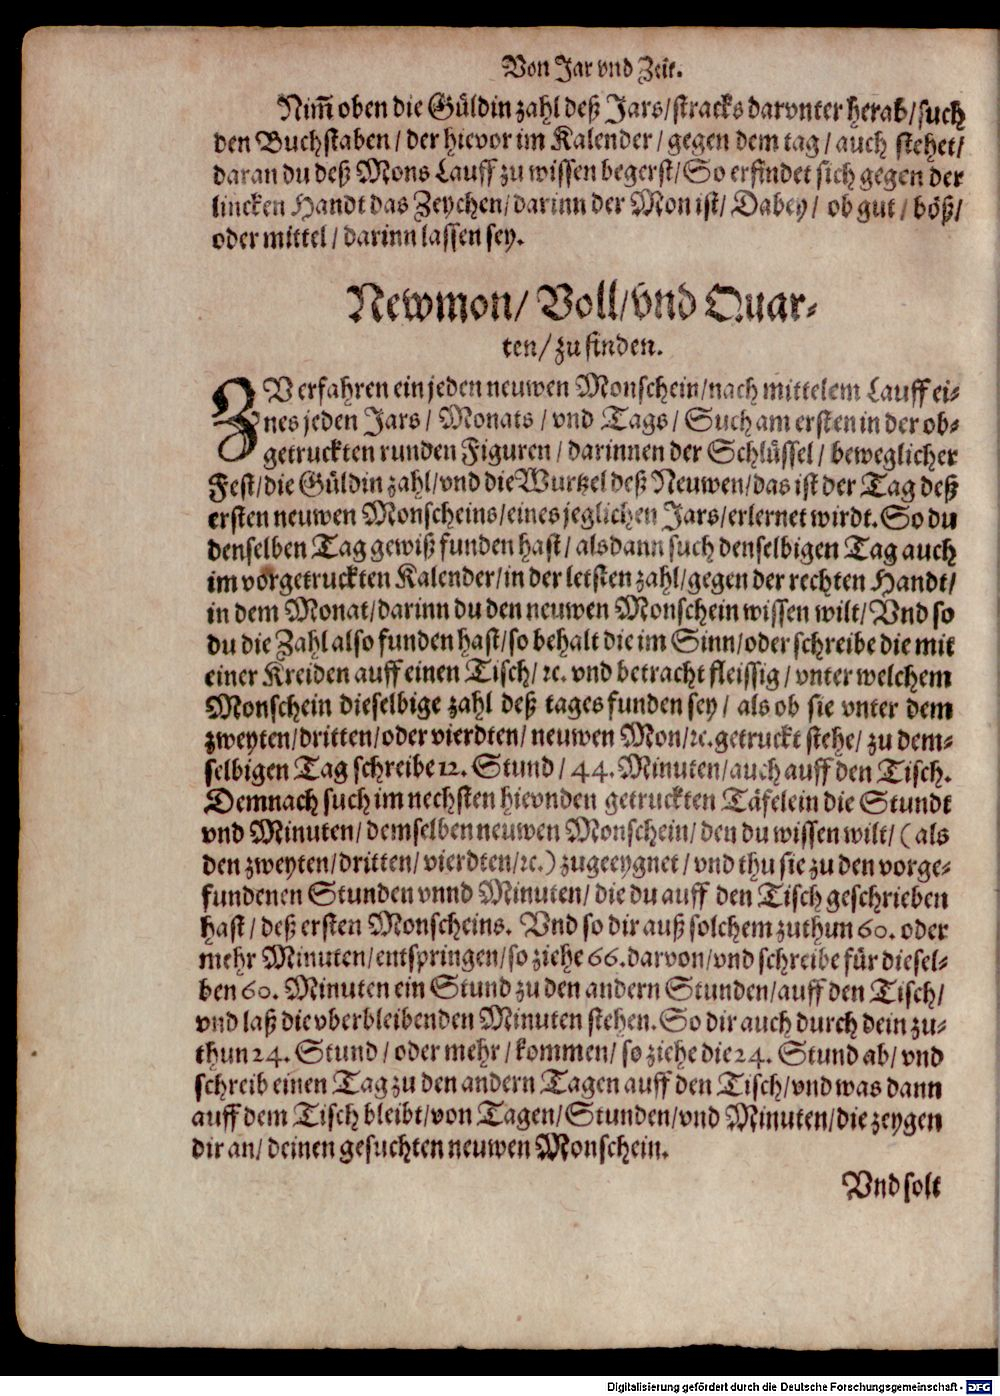 Von Jar vnd Zeit.
Nim̃ oben die Güldin zahl deß Jars/ stracks darvnter herab/ such
den Buchstaben/ der hievor im Kalender/ gegen dem tag/ auch stehet/
daran du deß Mons Lauff zu wissen begerst/ So erfindet sich gegen der
lincken Handt das Zeychen/ darinn der Mon ist/ Dabey/ ob gut/ böß/
oder mittel/ darinn lassen sey.
Newmon/ Voll/ vnd Quar-
ten/ zu finden.
ZVerfahren ein jeden neuwen Monschein/ nach mittelem Lauff ei-
nes jeden Jars/ Monats/ vnd Tags/ Such am ersten in der ob-
getruckten runden Figuren/ darinnen der Schlüssel/ beweglicher
Fest/ die Güldin zahl/ vnd die Wurtzel deß Neuwen/ das ist der Tag deß
ersten neuwen Monscheins/ eines jeglichen Jars/ erlernet wirdt. So du
denselben Tag gewiß funden hast/ alsdann such denselbigen Tag auch
im vorgetruckten Kalender/ in der letsten zahl/ gegen der rechten Handt/
in dem Monat/ darinn du den neuwen Monschein wissen wilt/ Vnd so
du die Zahl also funden hast/ so behalt die im Sinn/ oder schreibe die mit
einer Kreiden auff einen Tisch/ ꝛc. vnd betracht fleissig/ vnter welchem
Monschein dieselbige zahl deß tages funden sey/ als ob sie vnter dem
zweyten/ dritten/ oder vierdten/ neuwen Mon/ ꝛc. getruckt stehe/ zu dem-
selbigen Tag schreibe 12. Stund/ 44. Minuten/ auch auff den Tisch.
Demnach such im nechsten hievnden getruckten Täfelein die Stundt
vnd Minuten/ demselben neuwen Monschein/ den du wissen wilt/ (als
den zweyten/ dritten/ vierdten/ ꝛc.) zugeeygnet/ vnd thu sie zu den vorge-
fundenen Stunden vnnd Minuten/ die du auff den Tisch geschrieben
hast/ deß ersten Monscheins. Vnd so dir auß solchem zuthun 60. oder
mehr Minuten/ entspringen/ so ziehe 66. darvon/ vnd schreibe für diesel-
ben 60. Minuten ein Stund zu den andern Stunden/ auff den Tisch/
vnd laß die vberbleibenden Minuten stehen. So dir auch durch dein zu-
thun 24. Stund/ oder mehr/ kommen/ so ziehe die 24. Stund ab/ vnd
schreib einen Tag zu den andern Tagen auff den Tisch/ vnd was dann
auff dem Tisch bleibt/ von Tagen/ Stunden/ vnd Minuten/ die zeygen
dir an/ deinen gesuchten neuwen Monschein.
Vnd solt
Digitalisierung gefördert durch die Deutsche Forschungsgemeinschaft - DFG